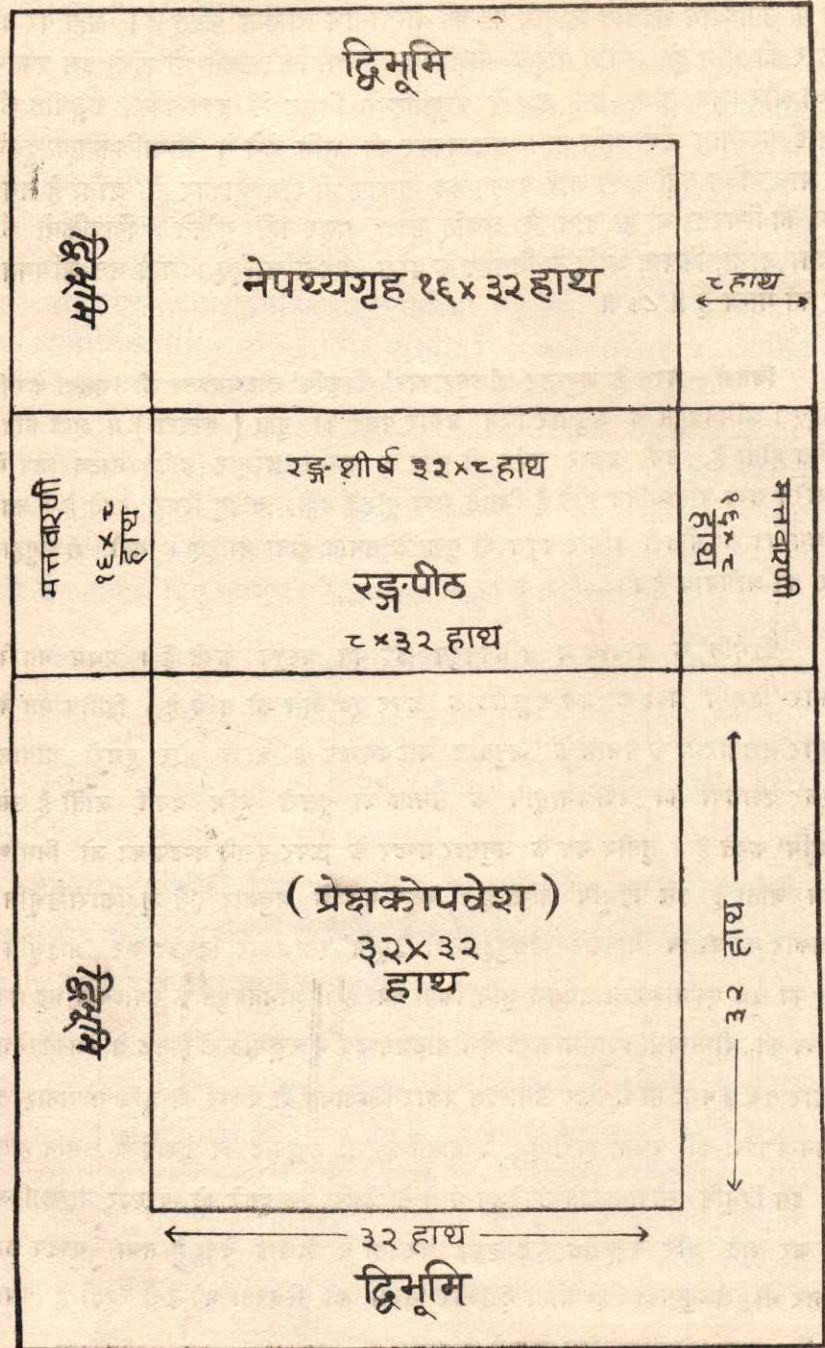 द्विभूमि
द्विभूमि
नेपथ्यगृह १६×३२ हाथ
८ हाथ
मत्तवारणी
१६×८
हाथ
रङ्गशीर्ष ३२×८ हाथ
रङ्गपीठ
८×३२ हाथ
१६×८
हाथ
मत्तवारणी
(प्रेक्षकोपवेश)
३२×३२
हाथ
३२ हाथ
द्विभूमि
३२ हाथ
द्विभूमि